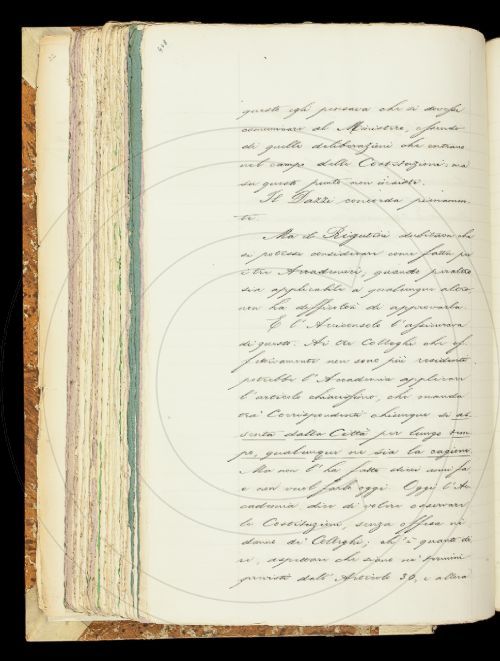 questo egli pensava che si dovesse
comunicare al Ministero, essendo
di quelle deliberazioni che entrano
nel campo delle Costituzioni: ma
su questo punto non insiste.
Il Dazzi concorda pienamen-
te.
Ma il Rigutini dubitava che
si potesse considerare come fatta per
i tre Accademici, quando peraltro
sia applicabile a qualunque altro
non ha difficoltà di approvarla.
E l'Arciconsolo l'assicurava
di questo. Ai tre Colleghi che ef-
fettivamente non sono più residenti
potrebbe l'Accademia applicare
l'articolo chiarissimo, che manda
tra' Corrispondenti chiunque si as-
senta dalla Città per lungo tem-
po, qualunque ne sia la cagione.
Ma non l'ha fatto dieci anni fa
e non vuol farlo oggi. Oggi l'Ac-
cademia dice di volere osservare
le Costituzioni, senza offesa nè
danno de' Colleghi; chi è quanto di-
re, aspettare che siano ne' termini
previsti dall'Articolo 30, e allora